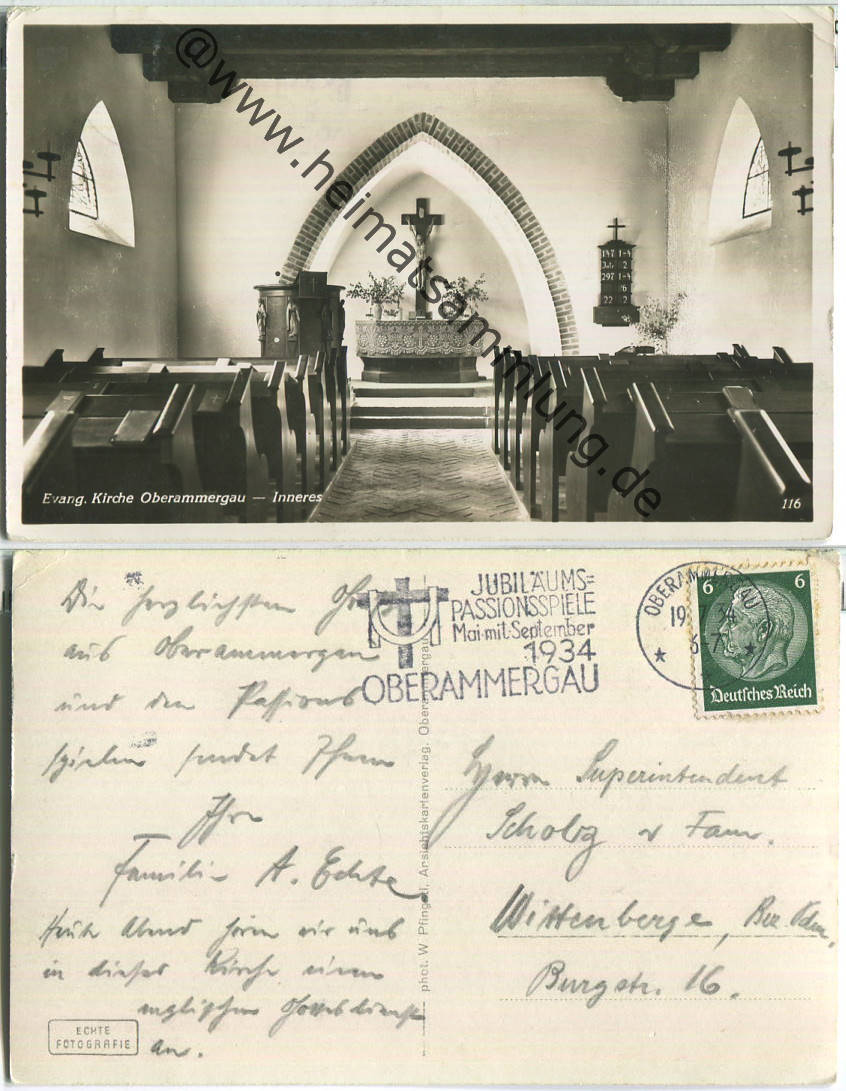 @www.heimatsammlung.de
147 1-4
297 1-4
22 2
Evang. Kirche Oberammergau — Inneres
116
Die herzlichsten
aus Oberammergau
und den Passions
spielen sendet Ihnen
Ihre
Familie A. Echte
Heute Abend hören wir uns
in dieser Kirche einen
englischen Gottesdienst
an.
ECHTE
FOTOGRAFIE
phot. W. Pfingstl, Ansichtskartenverlag, Oberammergau
JUBILÄUMS=
PASSIONSSPIELE
Mai mit September
1934
OBERAMMERGAU
OBERAMMERGAU
19.7.34
6-7
6 6
Deutsches Reich
Herrn Superintendent
Scholz u Fam.
Wittenberge, Bez.
Burgstr. 16.